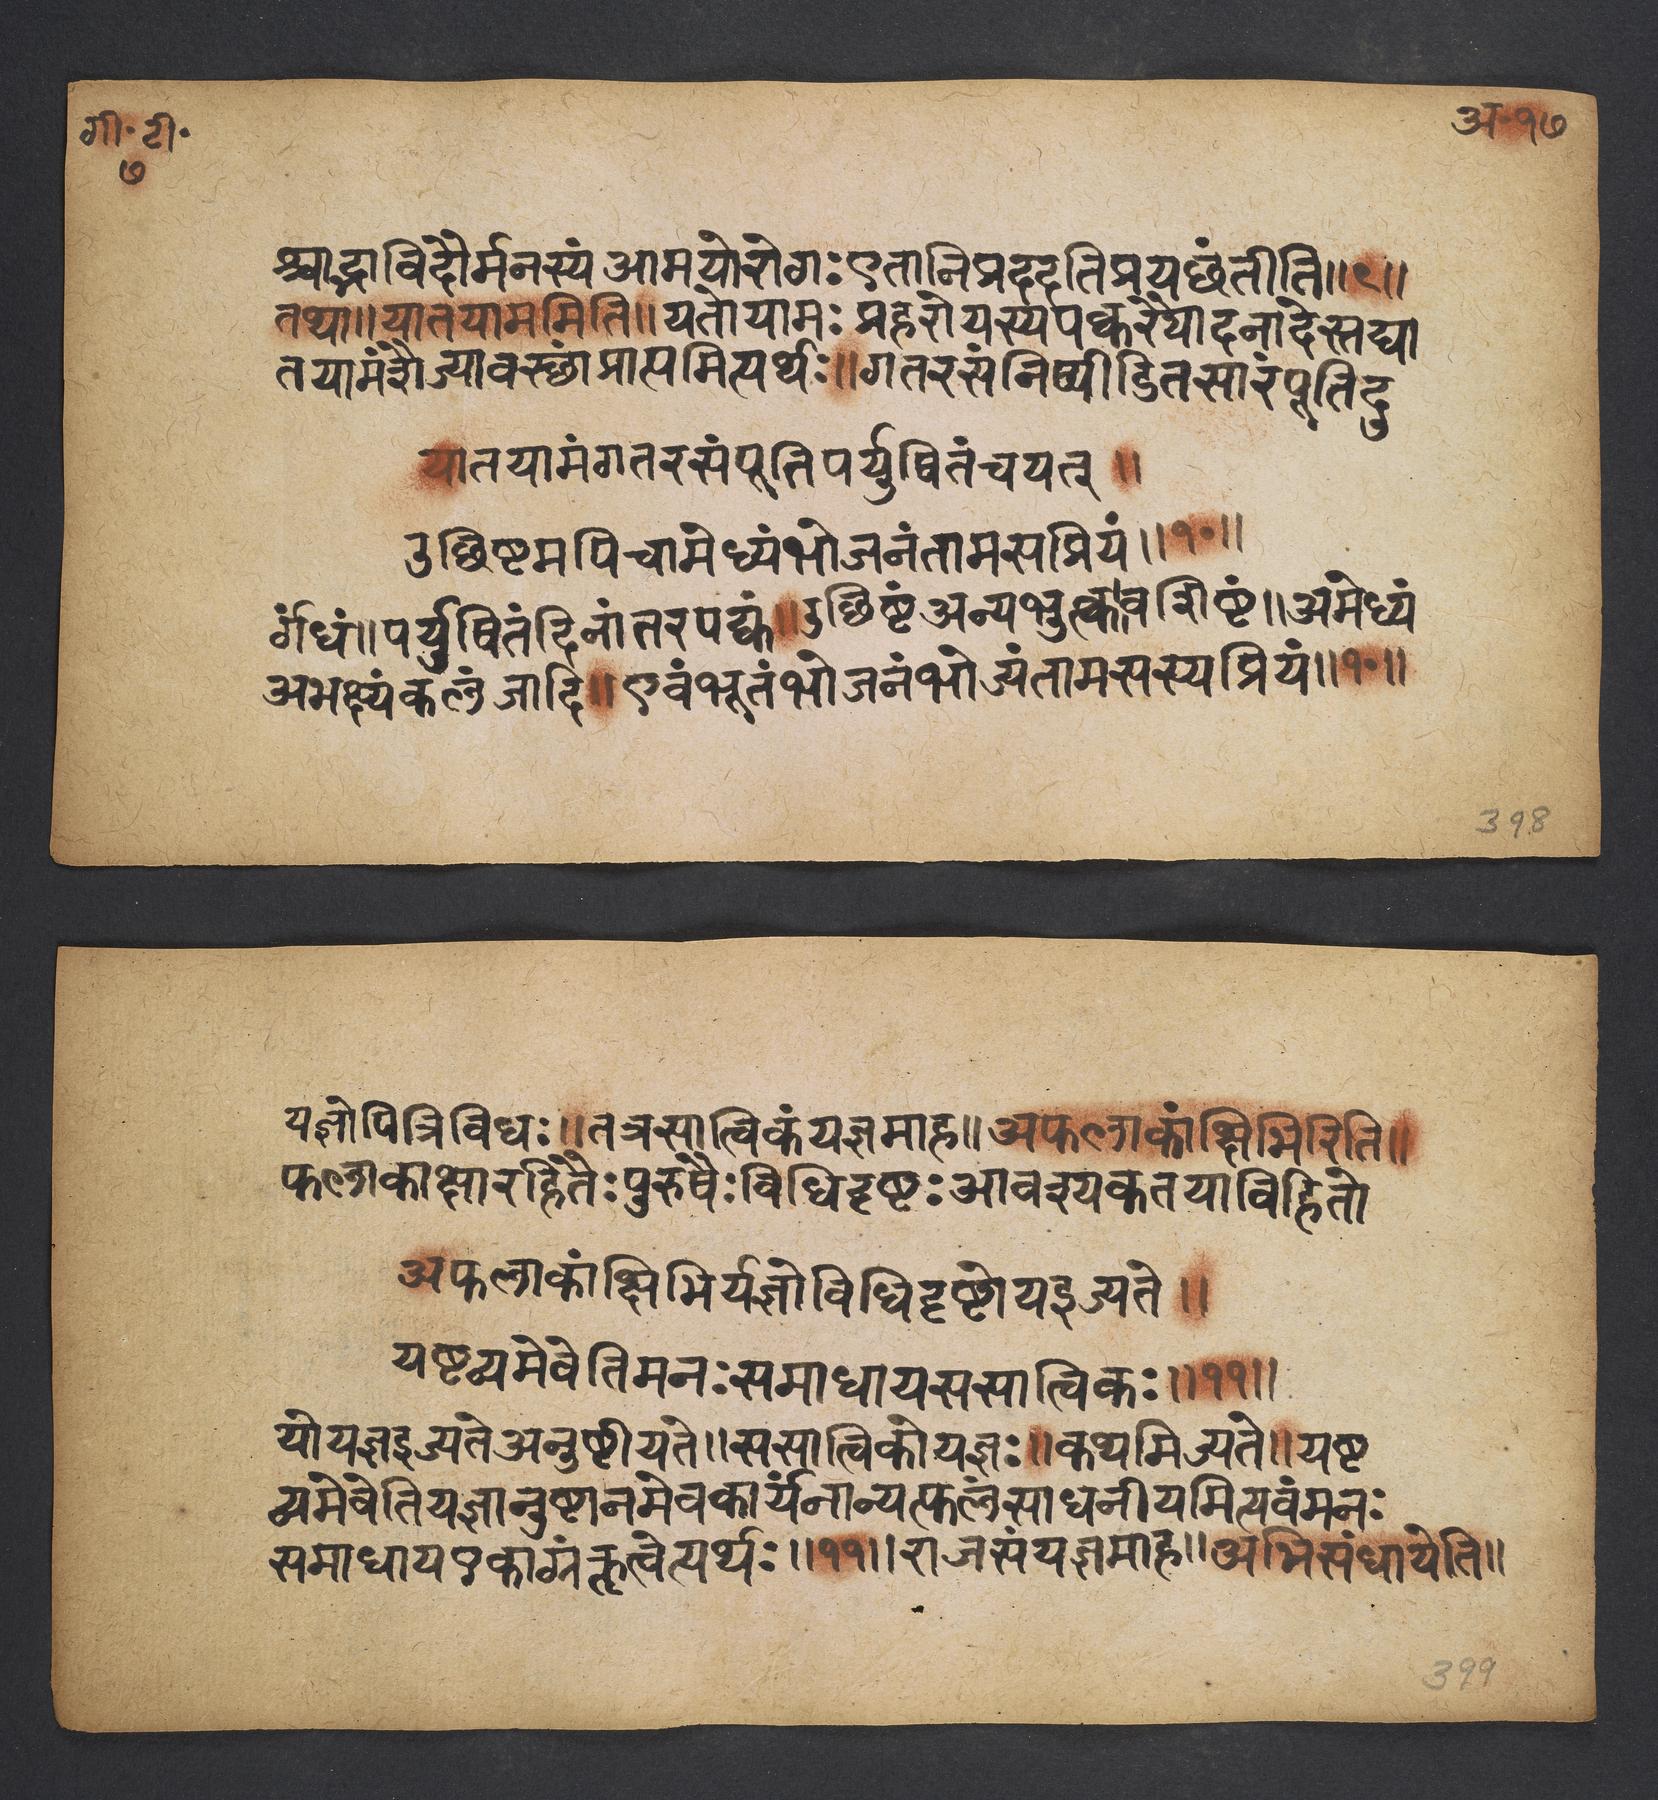 गी॰ टी॰
७
अ॰ १७
श्चाद्भाविदौर्मनस्यं आमयोरोगः एतानिप्रददतिप्रयछंतीति॥९॥
तथा॥यातयाममिति॥यतोयामः प्रहरोयस्यपक्क
तयामंशैत्यावस्छांप्राप्तमित्यर्थः॥गतरसंनिष्पीडितसारंपूतिदु
यातयामंगतरसंपूतिपर्युषितंचयत्॥
उछिष्टमपिचामेध्यंभोजनंतामसप्रियं॥१०॥
र्गंधं॥पर्युषितंदिनांतरपक्कं॥उछिष्टंअन्यभुक्तावशिष्टं॥अमेध्यं
अभक्ष्यंकलंजादि॥एवंभूतंभोजनंभोज्यंतामसस्यप्रियं॥१०॥
398
यज्ञोपित्रिविधः॥तत्रसात्विकंयज्ञमाह॥अफलाकांक्षिभिरिति॥
फलाकांक्षारहितैःपुरुषैःविधिदृष्टःआवश्यकतयाविहितो
अफलाकांक्षिभिर्यज्ञोविधिदृष्टोयइज्यते॥
यष्टव्यमेवेतिमनःसमाधायससात्विकः॥११॥
योयज्ञइज्यतेअनुष्टीयते॥ससात्विकोयज्ञः॥कथमिज्यते॥यष्ट
व्यमेवेतियज्ञानुष्टानमेवकार्यंनान्यत्फलंसाधनीयमित्यवंमनः
समाधायएकाग्रंकृत्वेत्यर्थः॥११॥राजसंयज्ञमाह॥अभिसंधायेति॥
399